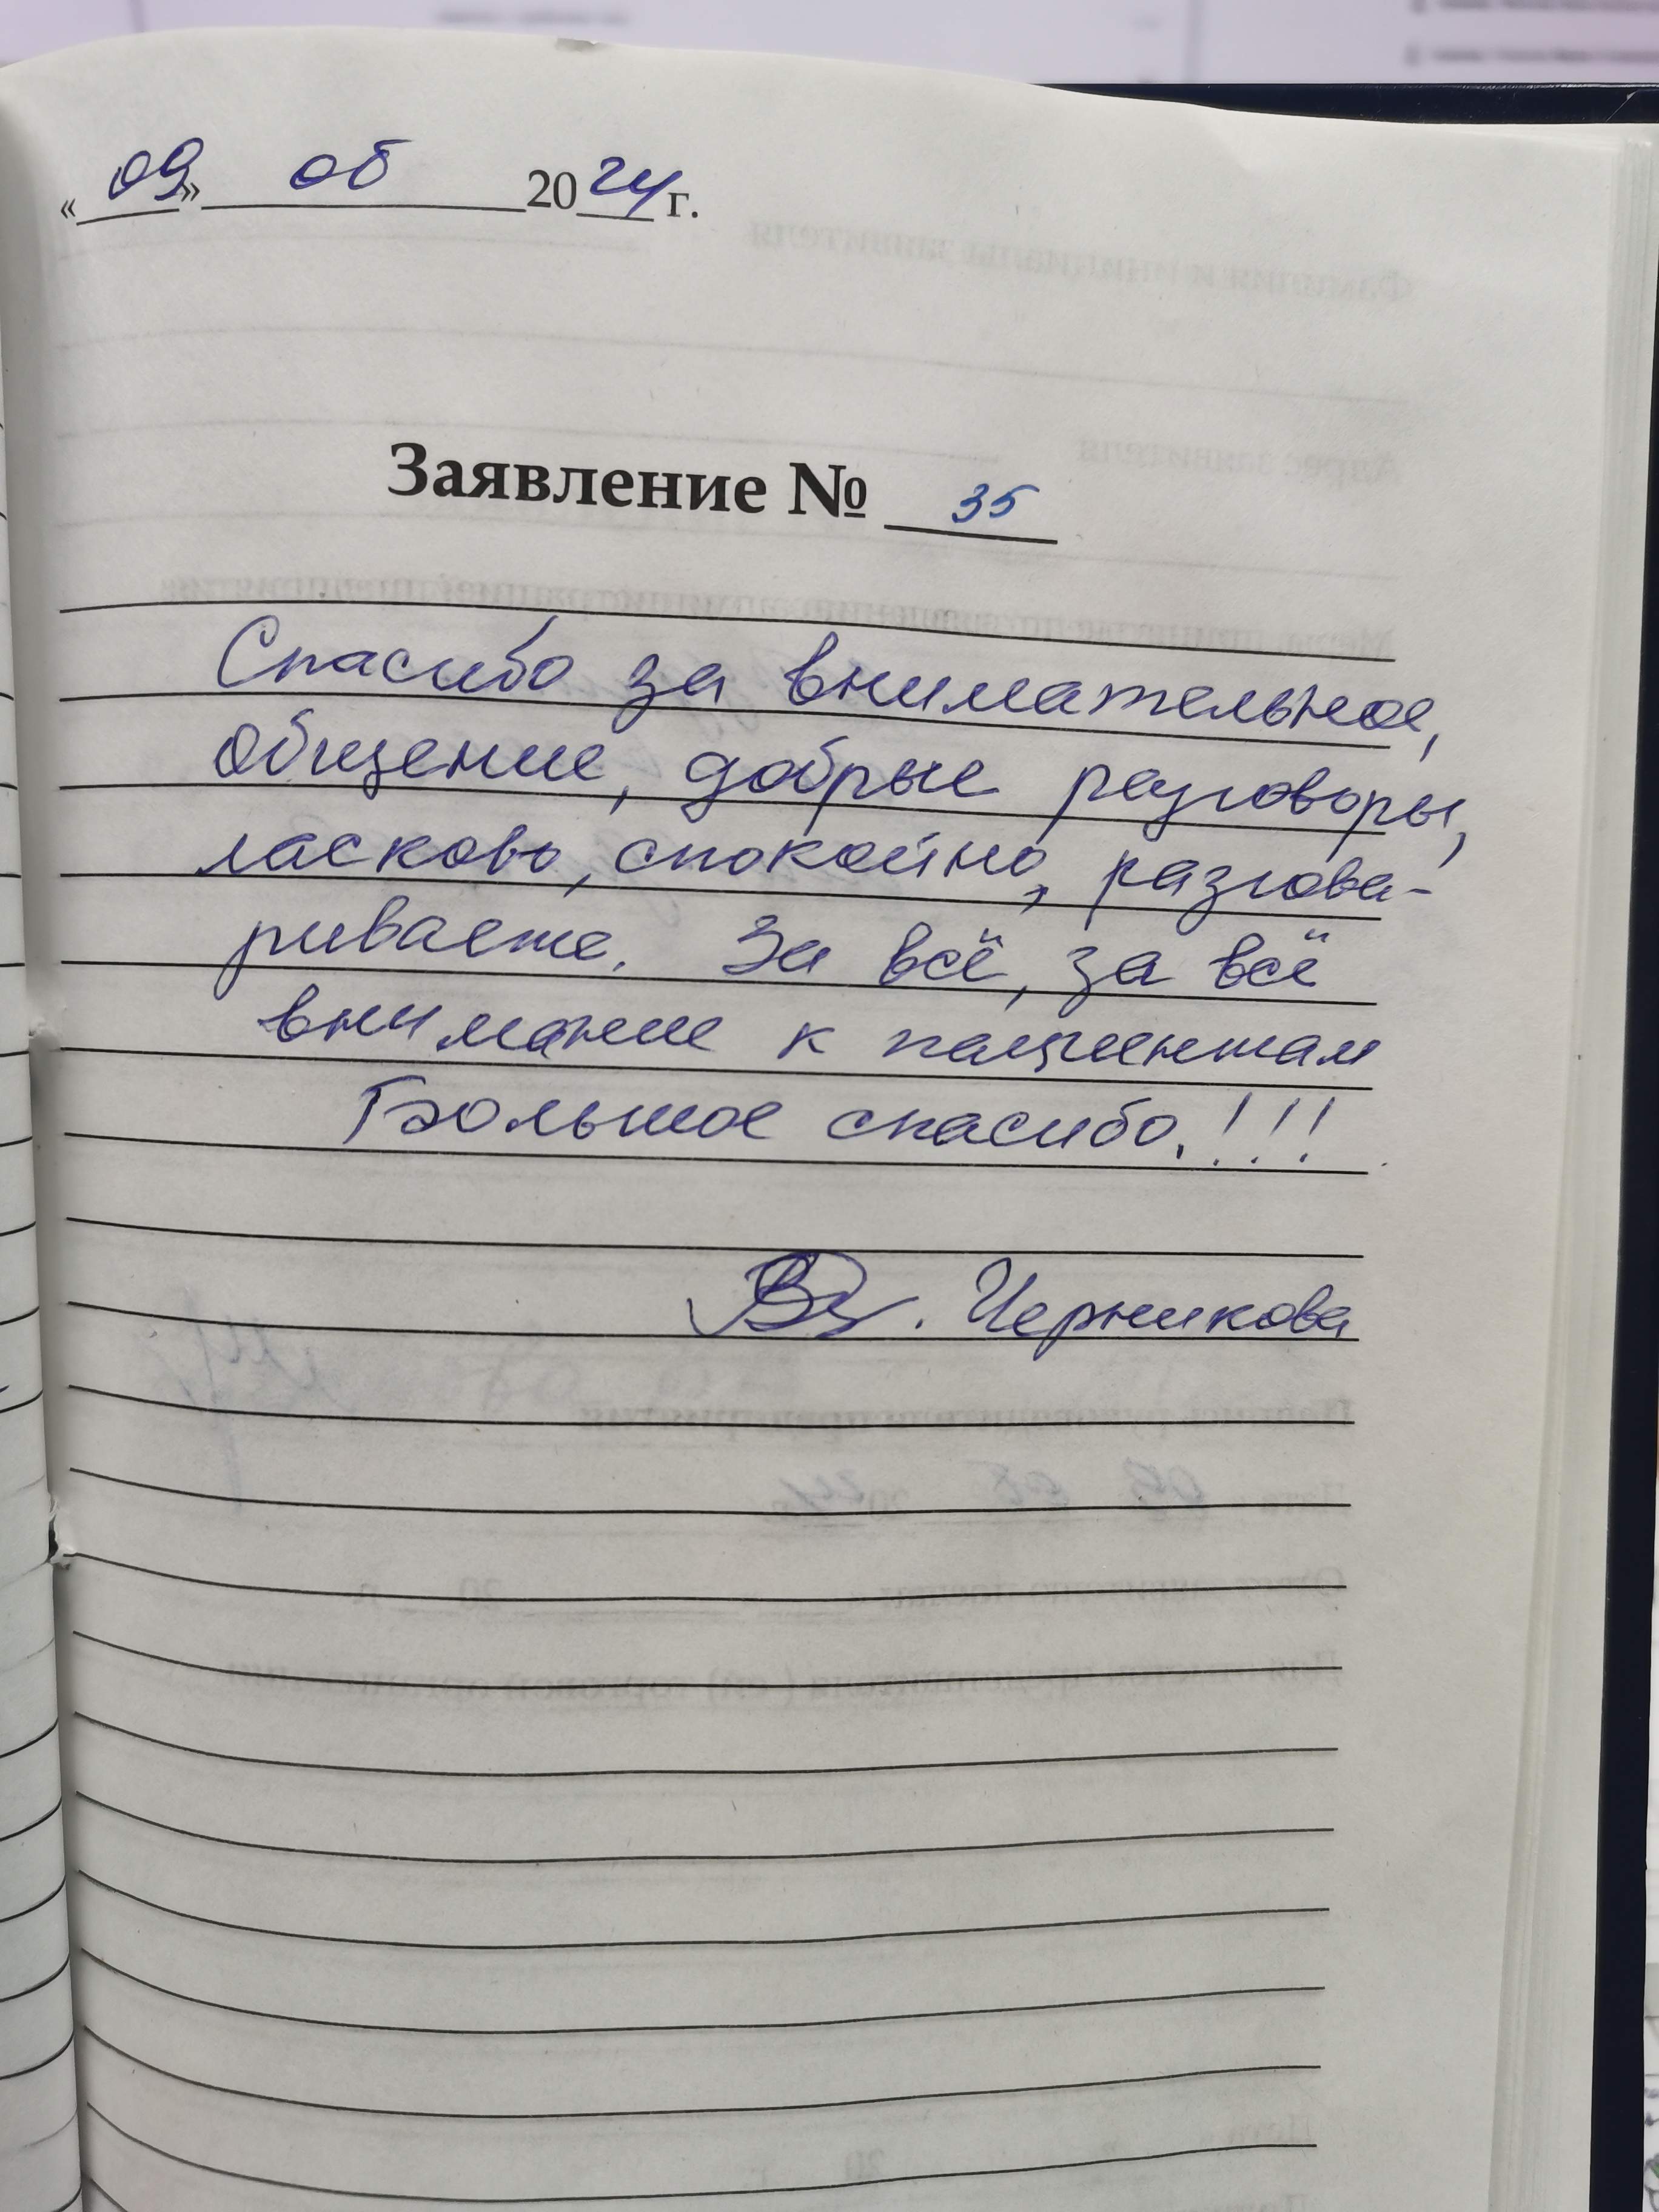 «09» 06 2024 г.
Заявление № 35
Спасибо за внимательное,
общение, добрые разговоры,
ласково, спокойно, разгова-
риваете. За всё, за всё
внимание к пациентам
Большое спасибо.!!!
Черникова